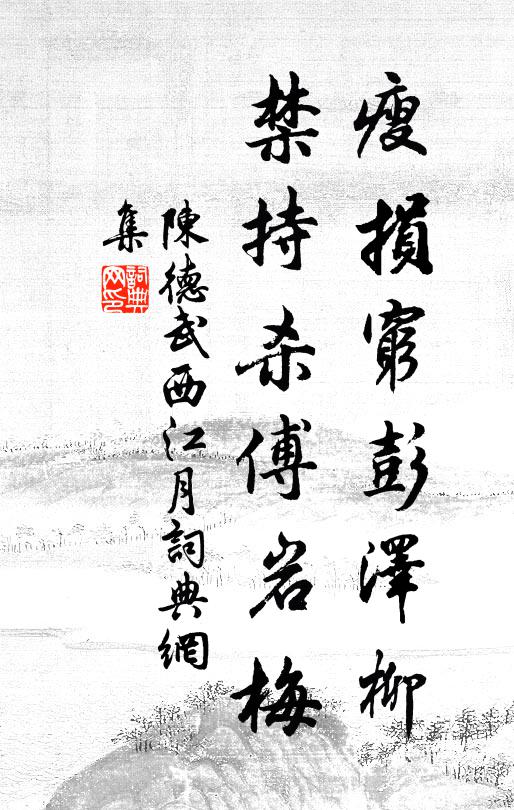 瘦損窮彭澤柳
禁持杀傅岩梅
陳德武西江月詞典網
集
詞典
网印